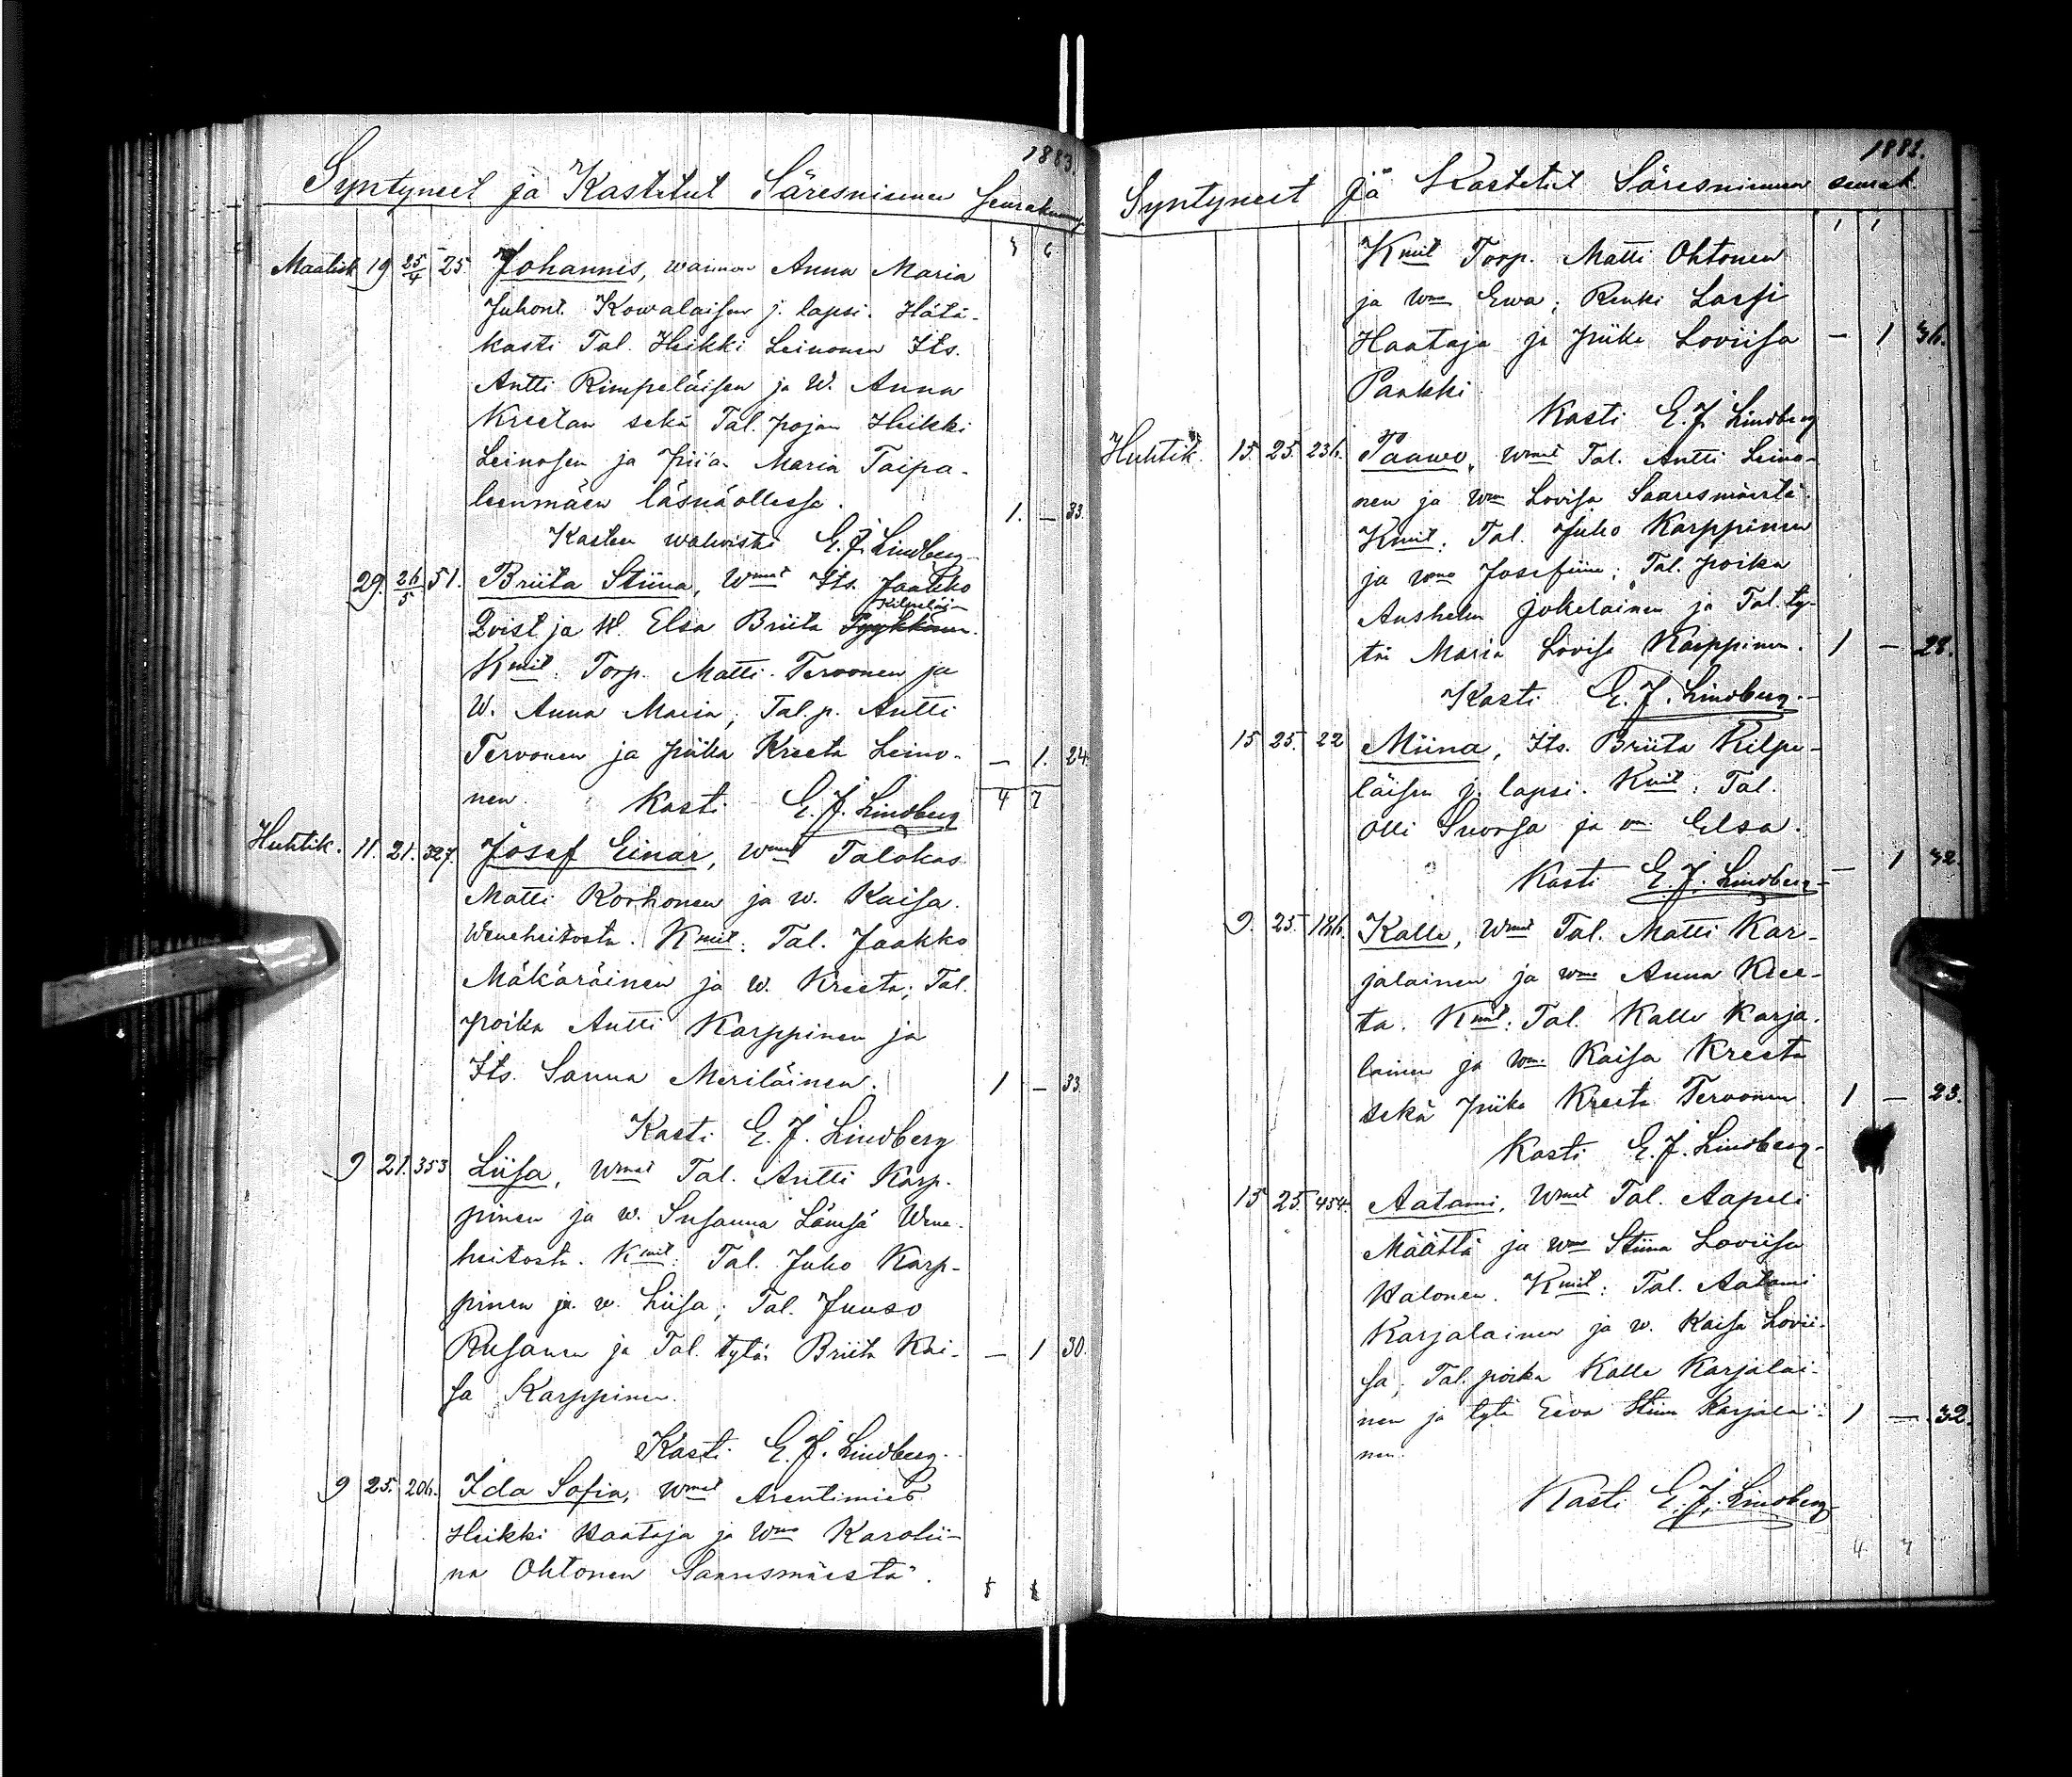 1883.
Syntyneet ja Kastetut Säresniemen Seurakunnas
3 6
Maalisk 19 25/4 25. Johannes, waimon Anna Maria
Juhont. Kowalaisen j. lapsi. Hätä-
kasti Tal. Heikki Leinonen Its.
Antti Rimpeläisen ja W. Anna
Kreetan sekä Tal. pojan Heikki
Leinosen ja piian Maria Taipa-
leenmäen läsnäollessa. 1. — 33.
Kasteen wahvisti E. J. Lindberg
29. 26/5 51. Briita Stiina, Wmat Its. Jaakko
Kilpeläi-
Qvist ja W. Elsa Briita Tyykkönen.
Kmit: Torp. Matti Tervonen ja
W. Anna Maria; Tal. p. Antti
Tervonen ja piika Kreeta Leino- — 1. 24.
nen. Kasti E. J. Lindberg 4 7
Huhtik. 11. 21. 327. Josef Einar, Wmat Talokas
Matti Korhonen ja w. Kaisa.
Weneheitosta. Kmit: Tal. Jaakko
Mäkäräinen ja w. Kreeta; Tal.
poika Antti Karppinen ja
Its. Sanna Meriläinen. 1 — 33.
Kasti E. J. Lindberg
9 21. 353 Liisa, Wmat Tal. Antti Karp-
pinen ja w. Susanna Lämsä Wene-
heitosta. Kmit: Tal. Juho Karp-
pinen ja w. Liisa; Tal. Juuso
Rusanen ja Tal. tytär Briita Kai- — 1 30.
sa Karppinen.
Kasti E. J. Lindberg.
9 25. 206. Ida Sofia, Wmat Arentimies
Heikki Haataja ja Wmo Karolii-
na Ohtonen Saaresmäestä.
1883.
Syntyneet ja Kastetut Säresniemen seurak.
1 1
Kmit Torp. Matti Ohtonen
ja Wmo Ewa; Renki Lassi
Haataja ja piika Loviisa — 1 36.
Pankki
Kasti E. J. Lindberg
Huhtik. 15. 25. 236. Paawo, Wmat Tal. Antti Leino-
nen ja Wmo Lovisa Saaresmäestä.
Kmit: Tal. Juho Karppinen
ja wmo Josefiina; Tal. poika
Anshelm Jokelainen ja Tal. ty-
tär Maria Lovisa Karppinen. 1 — 28.
Kasti E. J. Lindberg.
15 25. 22 Miina, Its. Briita Kilpe-
läisen j. lapsi. Kmit: Tal.
Olli Suorsa ja Elsa.
Kasti E. J. Lindberg — 1 32.
9. 25. 186. Kalle, Wmat Tal. Matti Kar-
jalainen ja wmo Anna Kree-
ta. Kmit: Tal. Kalle Karja-
lainen ja wmo Kaisa Kreeta
sekä piika Kreeta Tervonen 1 — 23.
Kasti E. J. Lindberg.
15 25. 454. Aatami, Wmat Tal. Aapeli
Määttä ja wmo Stiina Loviisa
Halonen. Kmit: Tal. Aatami
Karjalainen ja w. Kaisa Lovii-
sa; Tal. poika Kalle Karjalai-
nen ja tytä Eeva Stiina Karjalai- 1 — 32.
nen.
Kasti E. J. Lindberg